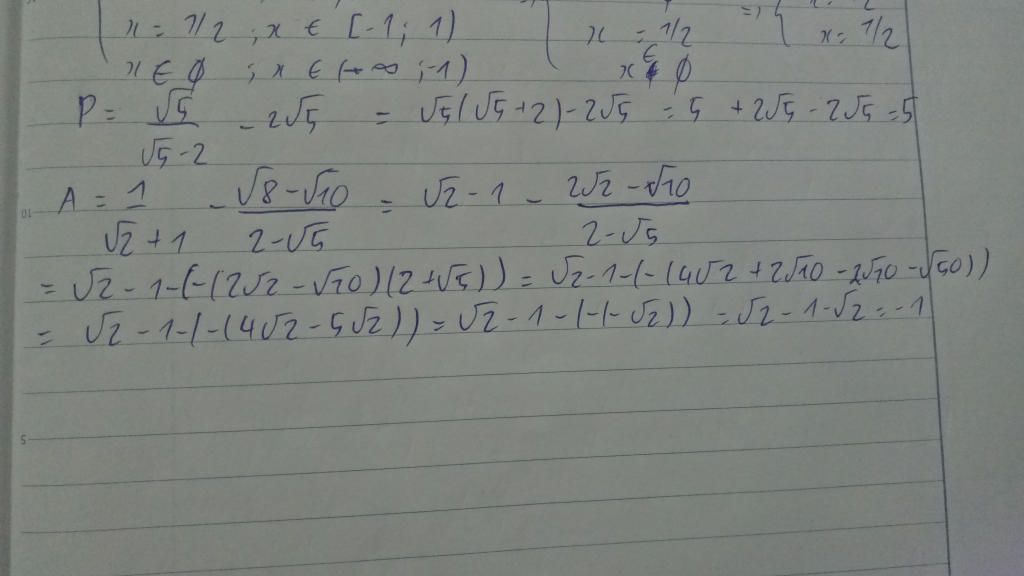 x = 7/2 ; x ∈ [-1; 1) x = 7/2 => { x = 7/2
x ∈ ∅ ; x ∈ (-∞; -1) x ∈ ∅
P = √5/(√5-2) - 2√5 = √5(√5+2) - 2√5 = 5 + 2√5 - 2√5 = 5
A = 1/(√2+1) - (√8-√10)/(2-√5) = √2 - 1 - (2√2-√10)/(2-√5)
= √2 - 1 - (-(2√2-√10)(2+√5)) = √2-1-(-(4√2+2√10-2√10-√50))
= √2 - 1 - (-(4√2-5√2)) = √2 - 1 - (-(-√2)) = √2 - 1 - √2 = -1
10
5